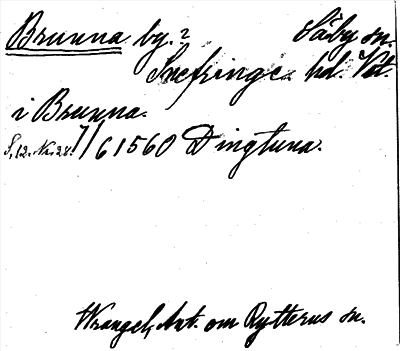 Brunna by.² Säby sn.
Snefringe hd. Vstl.
i Brunna.
S. 12. Nr. 28. 7/6 1560 Dingtuna.
Wrangel, Ant. om Rytterns sn.